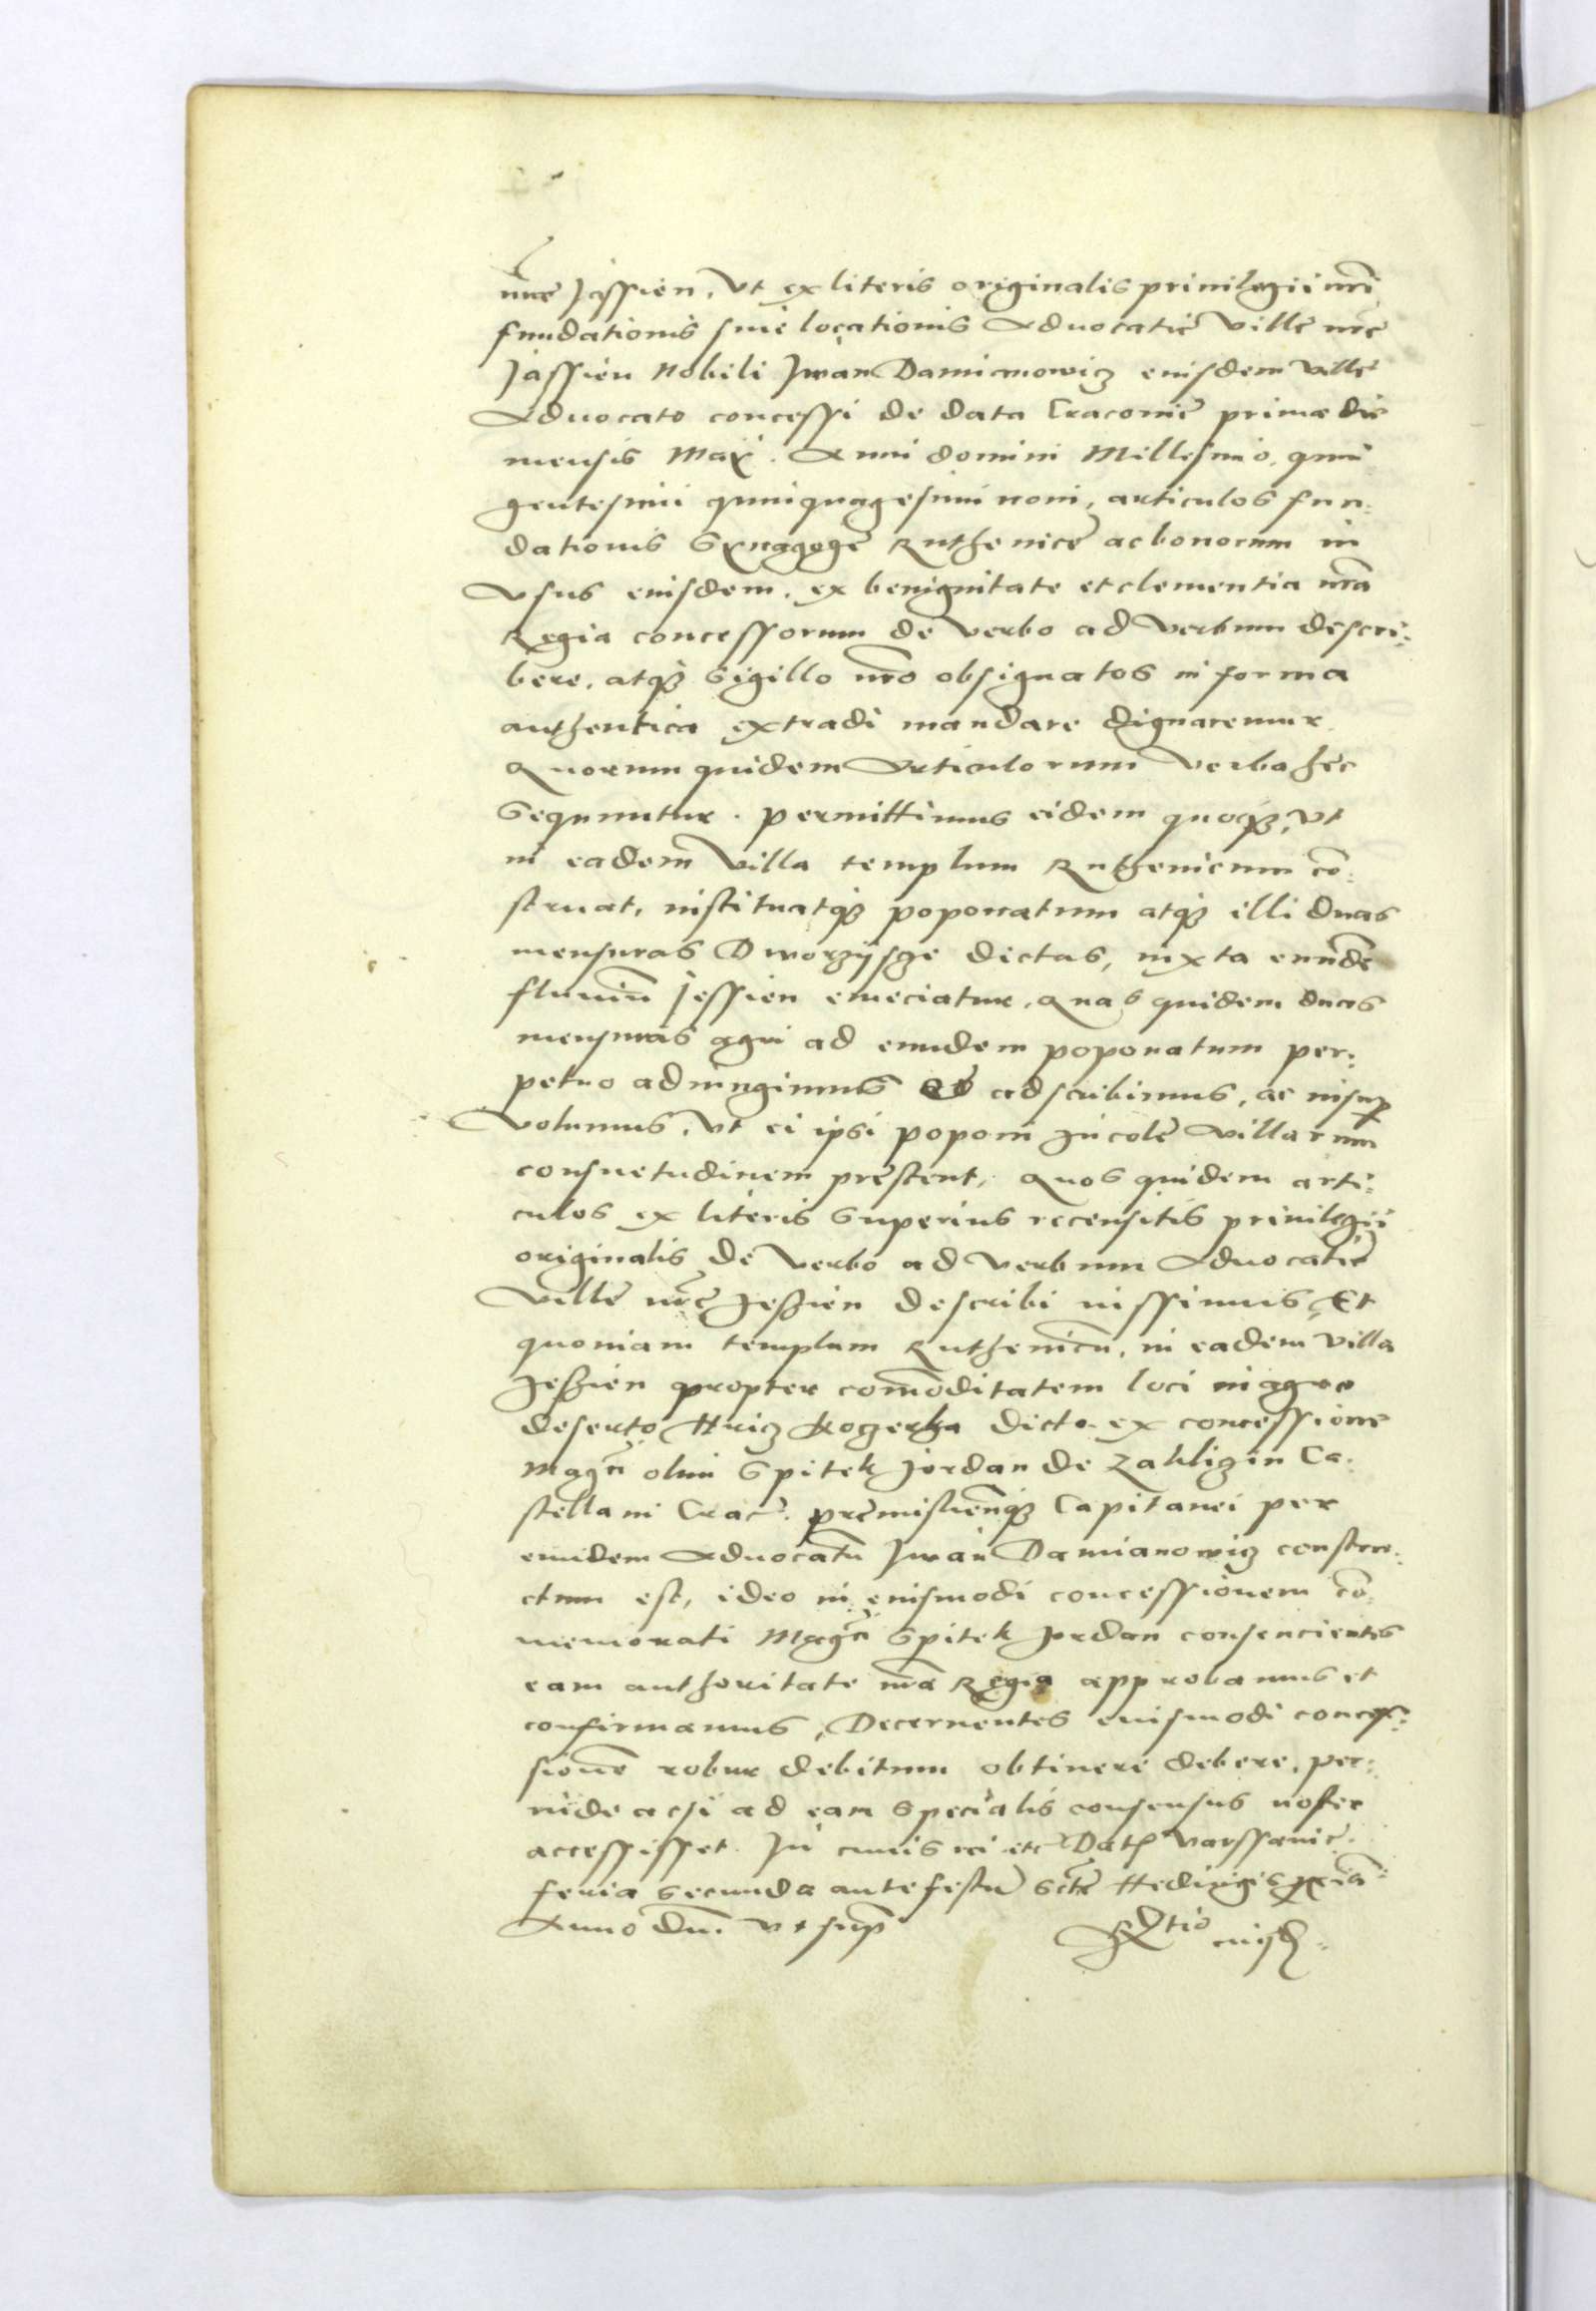 nrẽ Jassien, vt ex literis originalis priuilegii nrĩ
fundationis siue locationis Aduocatię villę nrẽ
Jassien Nobili Iwan Damianowicz eiusdem villę
Aduocato concessi de data Cracouię prima die
mensis Maÿ. Anni domini Millesimo, quin
gentesimi quinquagesimi noni, articulos fun:
dationis Synagogę Ruthenicę ac bonorum in
vsus eiusdem, ex benignitate et clementia nrã
Regia concessorum de verbo ad verbum descri:
bere, atq3 sigillo nrõ obsignatos in forma
authentica extradi mandare dignaremur.
Quorum quidem Articulorum verba hęc
sequuntur. Permittimus eidem quoq3, vt
in eadem villa templum Ruthenicum cõ:
struat, instituatq3 poponatum atq3 illi duas
mensuras Dworzÿsze dictas, iuxta eundẽ
fluuiũ Jessien emeciatur, Quas quidem duas
mensuras agri ad eundem poponatum per:
petuo adiungimus et adscribimus, ac insup
volumus, vt ei ipsi poponi Incolę villarum
consuetudinem pręstent, Quos quidem arti:
culos ex literis superius recensitis priuilegii
originalis de verbo ad verbum Aduocatię
villę nrẽ Jeßien describi iussimus, Et
quoniam templum Ruthenicũ, in eadem villa
Jeßien propter com̃oditatem loci in agro
deserto Hricz Kozerka dicto ex concessione
Magci olim Spitek Jordan de Zakliczin Ca:
stellani Crac. pręmisliensq3 Capitanei per
eundem Aduocatũ Iwan Damianowicz constru:
ctum est, ideo in eiusmodi concessionem cõ:
memorati Magci Spitek Jordan consencientes
eam authoritate nrã Regia approbamus et
confirmamus, Decernentes eiusmodi conces:
sionẽ robur debitum obtinere debere, per:
inde acsi ad eam specialis consensus noster
accessisset. In cuius rei etc Dat Varssauię
feria secunda ante festũ sctẽ Hedwigis pxiã
Anno Dni. vt sup
Rtio eiusd